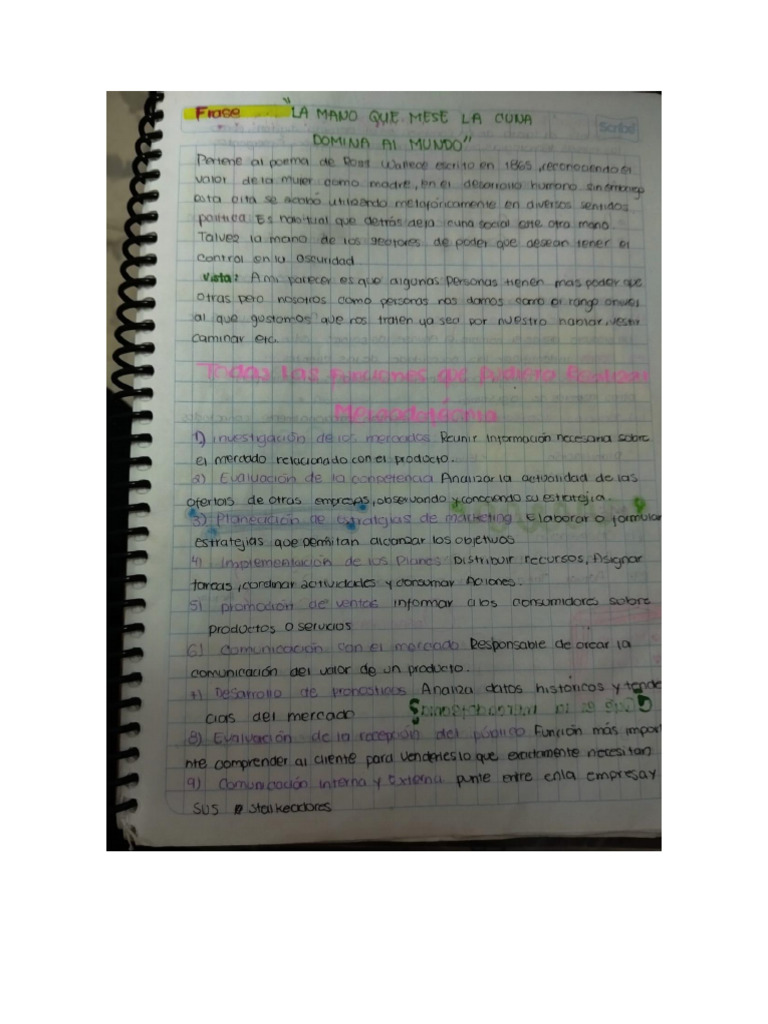 Frase "LA MANO QUE MESE LA CUNA
DOMINA AL MUNDO"
Scribe
Pertene al poema de Ross Wallece escrito en 1865, reconociendo el
valor de la mujer como madre, en el desarrollo humano sin embargo
esta cita se acabó utilizando metafóricamente en diversos sentidos
política. Es habitual que detrás de la cuna social este otra mano.
Talvez la mano de los sectores de poder que desean tener el
control en la oscuridad
Vista: A mi parecer es que algunas personas tienen mas poder que
otras pero nosotros como personas nos damos como el rango o nivel
al que gustamos que nos traten ya sea por nuestro hablar, vestir
caminar etc.
Todas las funciones que pudiera realizar
Mercadotecnia
1) investigación de los mercados Reunir información necesaria sobre
el mercado relacionado con el producto.
2) Evaluación de la competencia Analizar la actualidad de las
ofertas de otras empresas, observando y conociendo su estrategia.
3) Planeación de estrategias de marketing Elaborar o formular
estrategias que permitan alcanzar los objetivos
4) Implementación de los Planes Distribuir recursos, Asignar
tareas, cordinar actividades y consumar Aciones.
5) promoción de ventas informar a los consumidores sobre
productos o servicios
6) Comunicación con el mercado Responsable de crear la
comunicación del valor de un producto.
7) Desarrollo de pronosticos Analiza datos históricos y tende
cias del mercado
8) Evaluación de la recepción del público Función más import
nte comprender al cliente para venderles lo que exactamente necesitan
9) Comunicación interna y Externa punte entre en la empresa y
sus stalkeadores